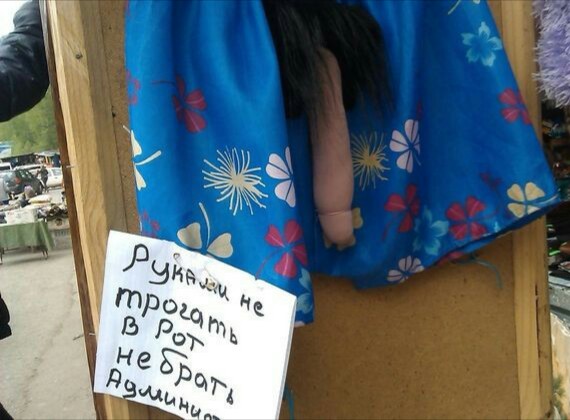 Руками не
трогать
в Рот
не брать
Админист